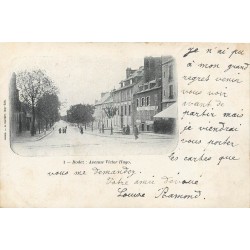 je n'ai pu
à mon grand
regret venir
vous voir
avant de
partir mais
je viendrai
vous porter
les cartes que
vous me demandez.
Votre ami dévoué
Louise Ramond.
1 - Rodez : Avenue Victor Hugo.